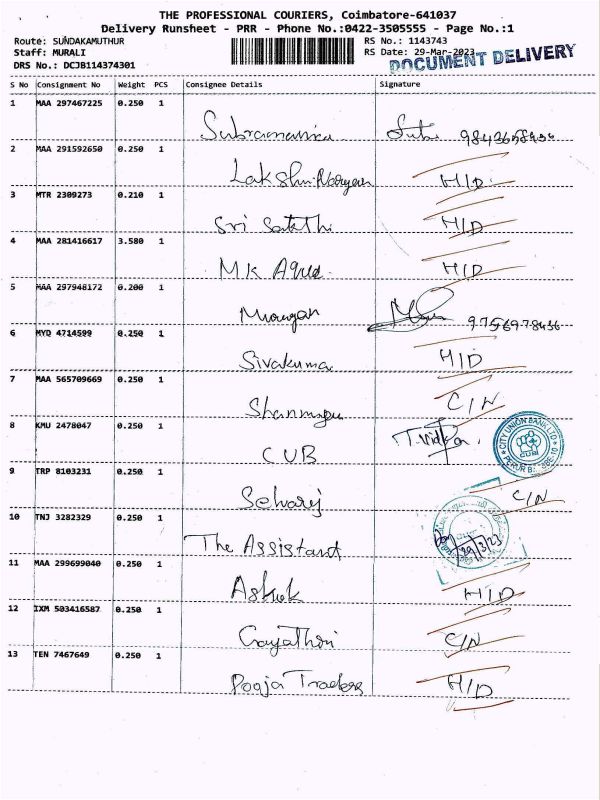 THE PROFESSIONAL COURIERS, Coimbatore-641037
Delivery Runsheet - PRR - Phone No.:0422-3505555 - Page No.:1
Route: SUNDAKAMUTHUR RS No.: 1143743
Staff: MURALI RS Date: 29-Mar-2023
DRS No.: DCJB114374301 DOCUMENT DELIVERY
S No Consignment No Weight PCS Consignee Details Signature
1 MAA 297467225 0.250 1
Subramania
2 MAA 291592650 0.250 1
Lakshmi Narayan H/D
3 MTR 2309273 0.210 1
Sri Sakthi H/D
4 MAA 281416617 3.580 1
MK Aqua H/D
5 MAA 297948172 0.200 1
Murugan 9756978456
6 MYD 4714599 0.250 1
Sivakumar H/D
7 MAA 565709669 0.250 1
Shanmugu C/N
8 KMU 2478047 0.250 1
CUB T.Vidya CITY UNION BANK LTD CUB
9 TRP 8103231 0.250 1
Selvaraj C/N
10 TNJ 3282329 0.250 1
The Assistant 29/3/23
11 MAA 299699040 0.250 1
Ashok H/D
12 IXM 503416587 0.250 1
Gayathri C/N
13 TEN 7467649 0.250 1
Pooja Traders H/D